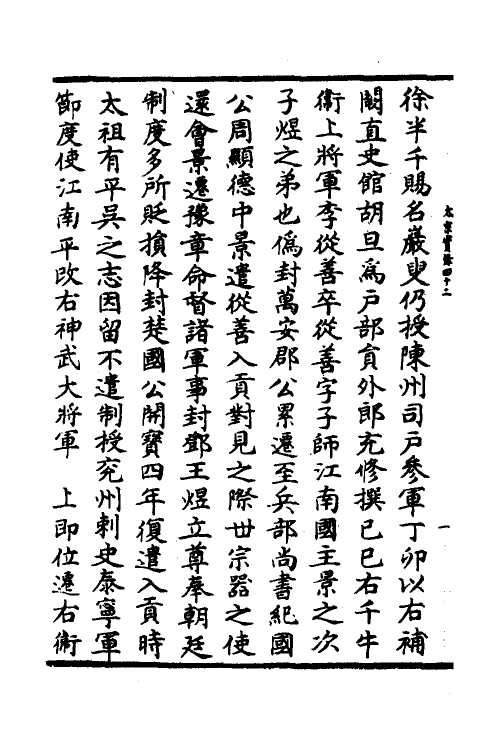 徐半千賜名巖叟仍授陳州司戶參軍丁卯以右補
闕直史館胡旦爲戶部員外郎充修撰己巳右千牛
衛上將軍李從善卒從善字子師江南國主景之次
子煜之弟也僞封萬安郡公累遷至兵部尚書紀國
公周顯德中景遣從善入貢對見之際世宗器之使
還會景遷豫章命督諸軍事封鄧王煜立尊奉朝廷
制度多所貶損降封楚國公開寶四年復遣入貢時
太祖有平吳之志因留不遣制授兖州刺史泰寧軍
節度使江南平改右神武大將軍　上即位遷右衛
太宗實錄四十二
一